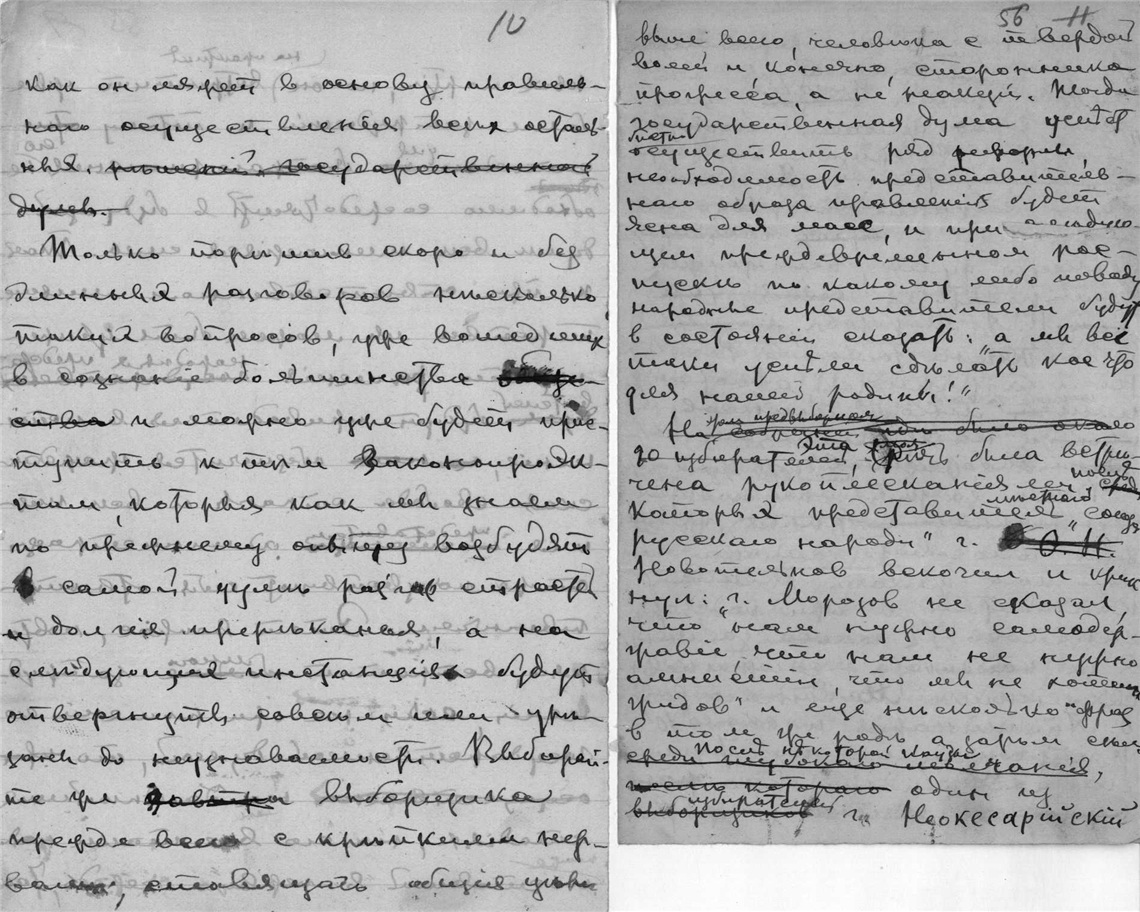 10
как он ляжет в основу правиль-
наго осуществления всех осталь-
ных. решений государственной
думы.
Только порешив скоро и без
длинных разговоров несколько
таких вопросов, уже вошедших
в сознание большинства обще-
ства и можно уже будет прис-
тупить к тем законопроэк-
там, которыя как мы знаем
по прежнему опыту возбудят
в самой думе разгар страстей
и долгия пререкания, а на
следующих инстанциях будут
отвергнуты совсем или уре-
заны до неузнаваемости. Выбирай-
те же завтра выборщика
прежде всего с крепкими нер-
вами, ставящаго общия цели
56 11
выше всего, человека с твердой
волей и, конечно, сторонника
прогресса, а не реакции. Тогда
государственная дума успеет
осуществить ряд реформ,
необходимость представитель-
наго образа правления будет
ясна для масс, и при последую-
щем преждевременном рос-
пуске по какому либо поводу
народные представители будут
в состоянии сказать: „а мы все
таки успели сделать кое что
для нашей родины!"
На собрании, при было около
30 избирателей, эта речь была встре-
чена рукоплесканиями, после
которых представитель местного „союза
русскаго народа" г. О. Н.
Новотельнов вскочил и крик-
нул: „г. Морозов не сказал,
что нам нужно самодер-
жавие, что нам не нужно
амнистии, что мы не хотим
жидов" и еще несколько фраз
в том же роде, а затем
После некоторой паузы
среди глубокаго молчания,
после котораго один из
избирателей
выборщиков г. Неокесарийский